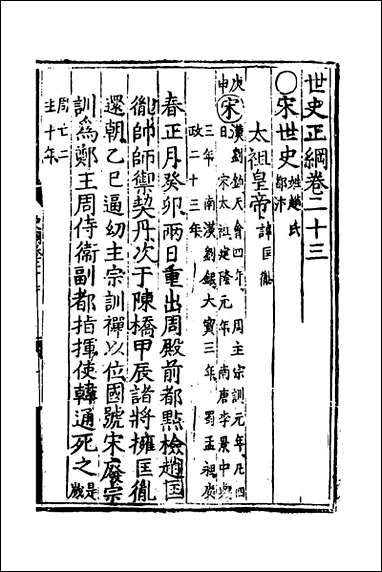 世史正綱卷二十三
○宋世史姓趙氏都汴
太祖皇帝諱匡胤
庚申宋漢劉鈞天會四年周主宗訓元年凡四
日宋太祖建隆元年南唐李景中興
三年南漢劉鋹大寶三年蜀孟昶廣
政二十三年
春正月癸卯兩日重出周殿前都點檢趙匡
胤帥師禦契丹次于陳橋甲辰諸將擁匡胤
還朝乙巳逼幼主宗訓禪以位國號宋廢宗
訓爲鄭王周侍衛副都指揮使韓通死之是歲
周亡二
主十年